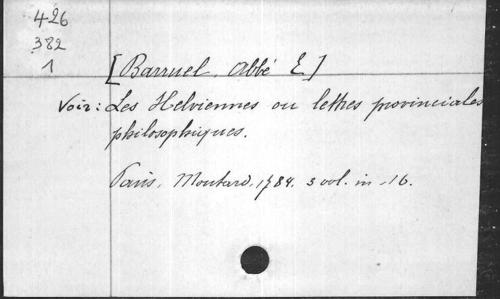 426
382
1
[Barruel, Abbé E]
Voir: Les Helviennes ou lettres provinciales
philosophiques.
Paris, Moutard, 1784. 3 vol. in-16.